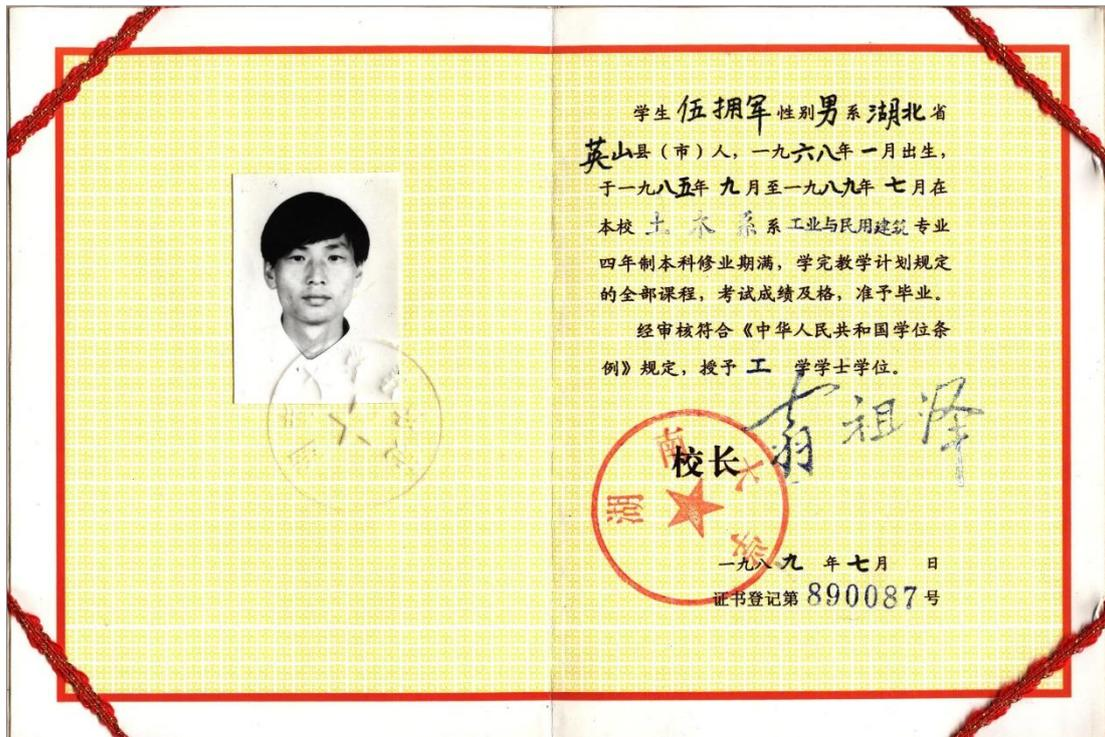 学生 伍拥军 性别 男 系 湖北 省
英山 县（市）人，一九六八年 一月出生，
于一九八五年 九月至一九八九年 七月在
本校 土木系 系 工业与民用建筑 专业
四年制本科修业期满，学完教学计划规定
的全部课程，考试成绩及格，准予毕业。
经审核符合《中华人民共和国学位条
例》规定，授予 工 学学士学位。
校长 翁祖泽
湖南大学
一九八九 年 七月 日
证书登记第 890087 号